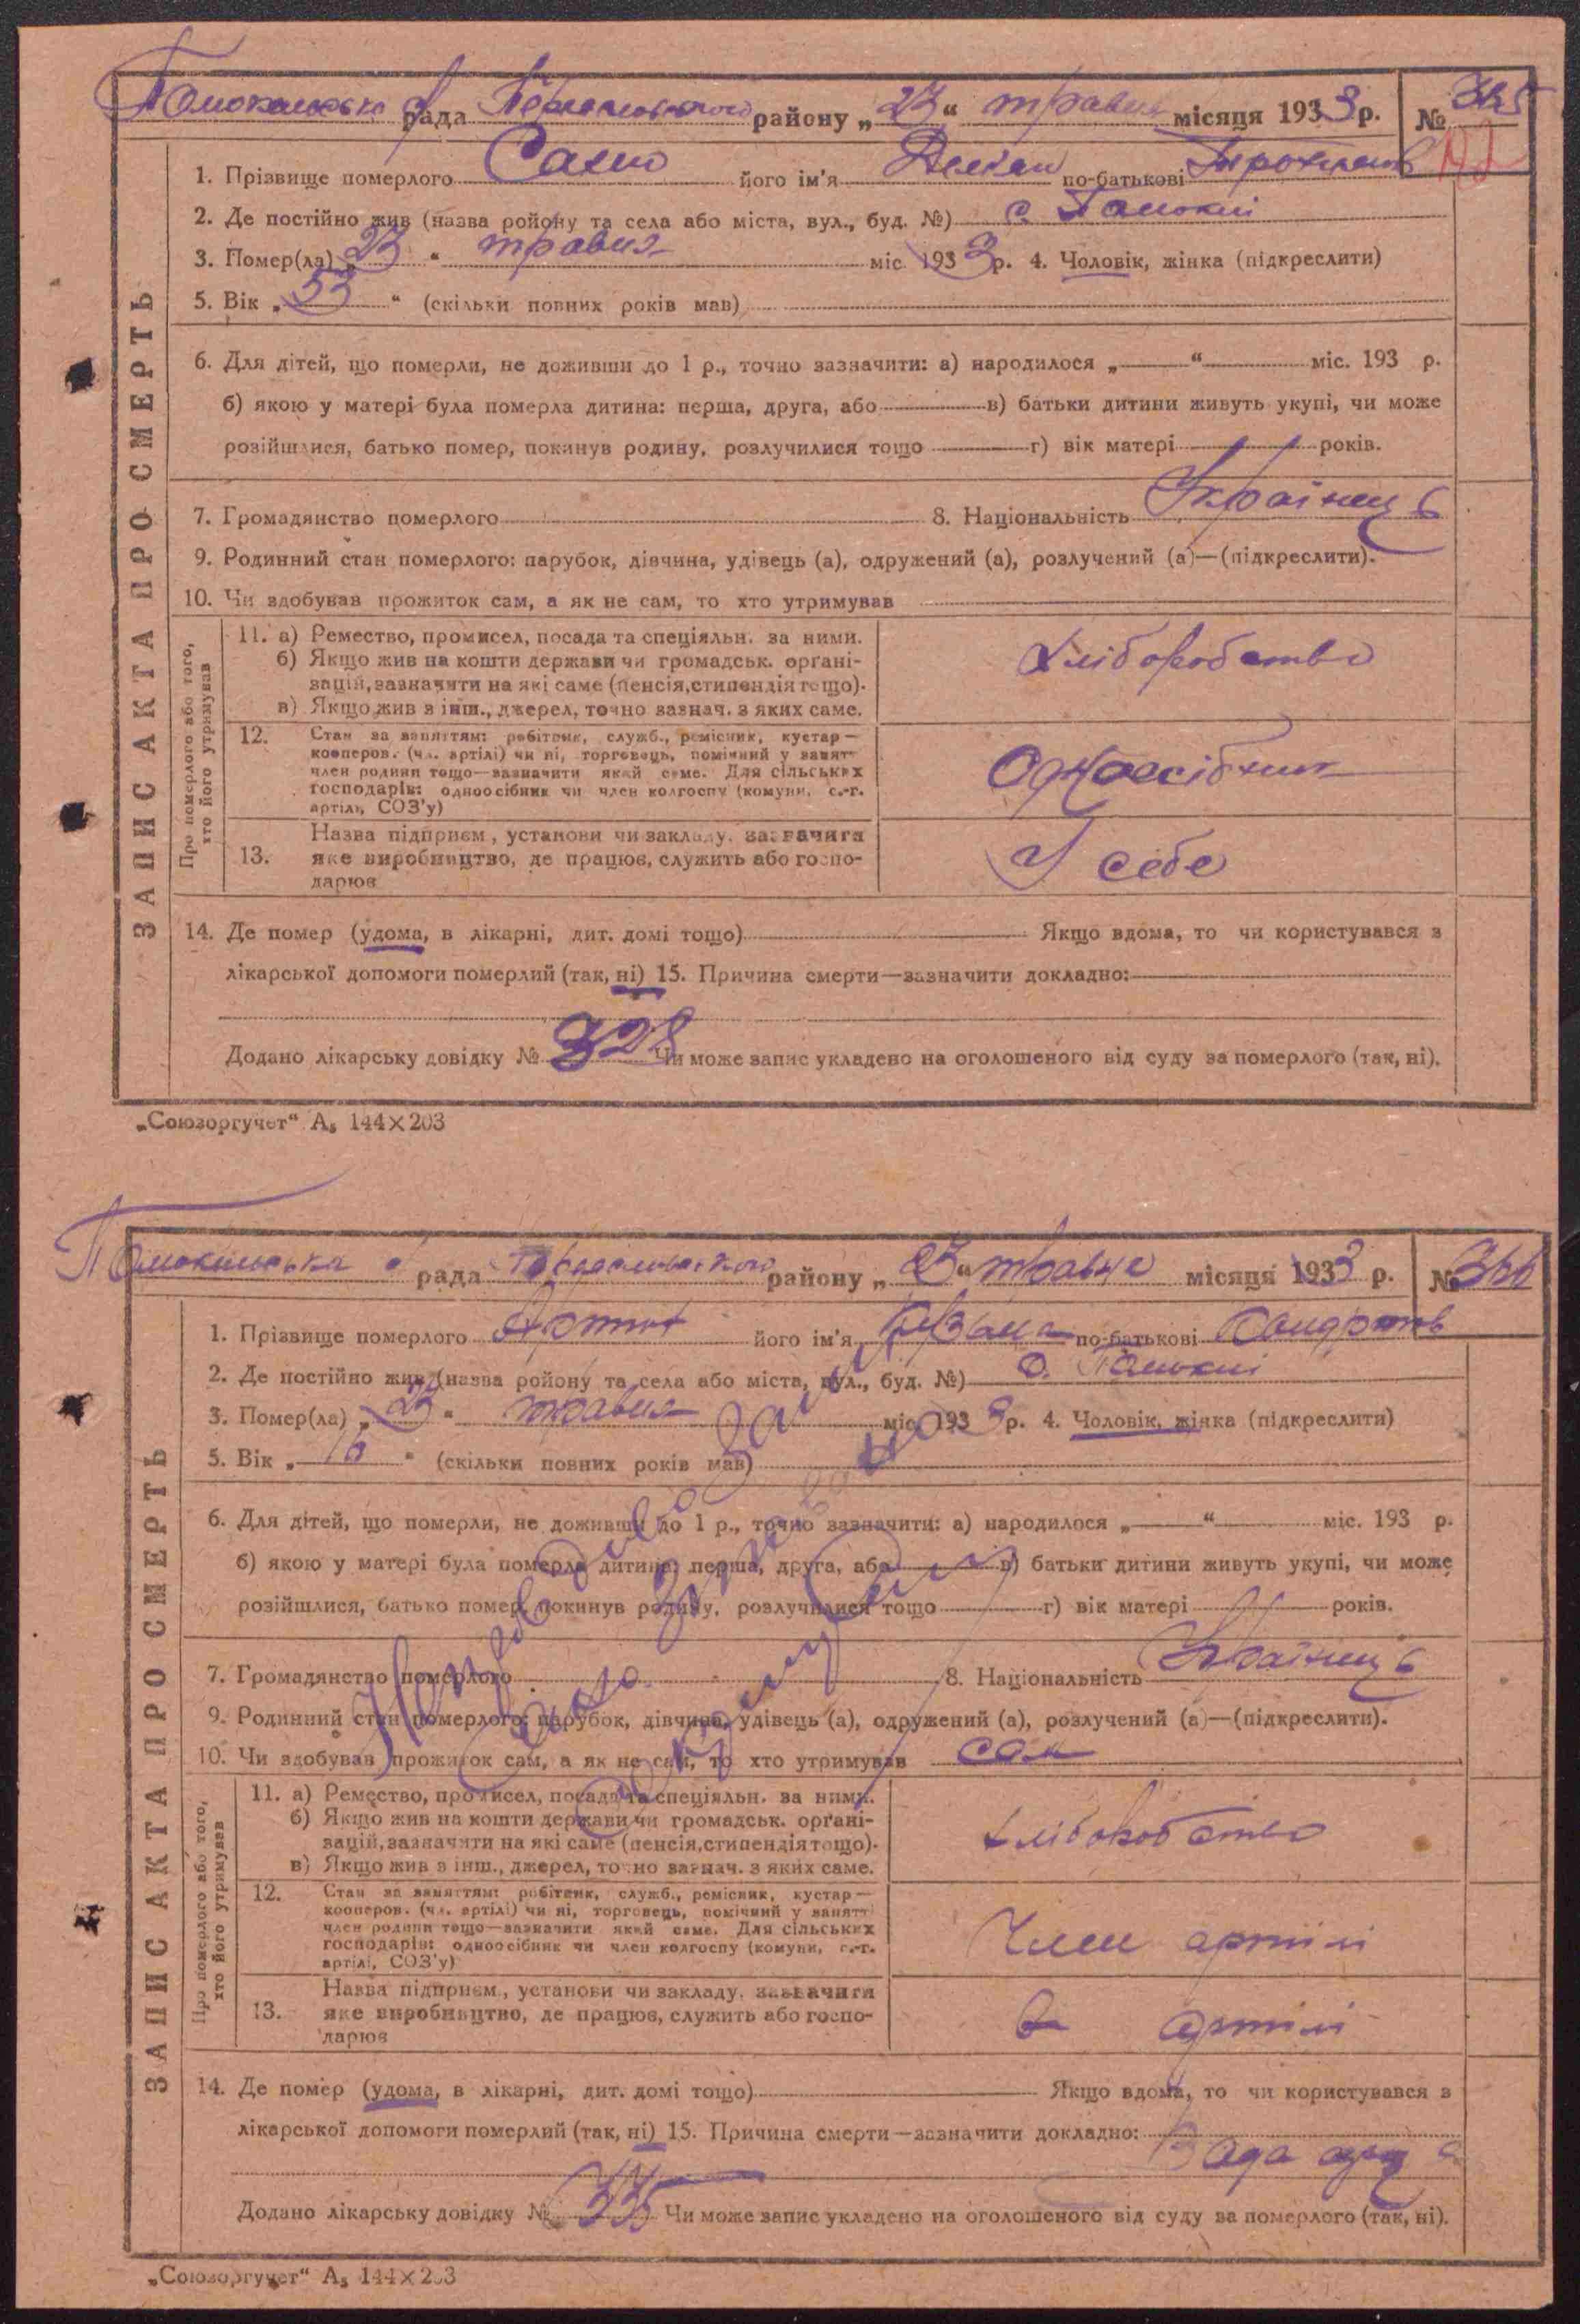 рада району „ 23 “ травня місяця 1933 р. №
1. Прізвище померлого його ім'я по-батькові
2. Де постійно жив (назва ройону та села або міста, вул., буд. №) с.
3. Помер(ла) „ 23 “ травня міс. 1933 р. 4. Чоловік, жінка (підкреслити)
5. Вік „ 53 “ (скільки повних років мав)
6. Для дітей, що померли, не доживши до 1 р., точно зазначити: а) народилося „ “ міс. 193 р.
б) якою у матері була померла дитина: перша, друга, або в) батьки дитини живуть укупі, чи може
розійшлися, батько помер, покинув родину, розлучилися тощо г) вік матері років.
7. Громадянство померлого 8. Національність Українець
9. Родинний стан померлого: парубок, дівчина, удівець (а), одружений (а), розлучений (а)—(підкреслити).
10. Чи здобував прожиток сам, а як не сам, то хто утримував
ЗАПИС АКТА ПРО СМЕРТЬ
Про померлого або того, хто його утримував
11. а) Ремество, промисел, посада та спеціяльн. за ними.
б) Якщо жив на кошти держави чи громадськ. орґані-
зацій, зазначити на які саме (пенсія, стипендія тощо).
в) Якщо жив з інш., джерел, точно зазнач. з яких саме.
Хліборобство
12. Стан за заняттям: робітник, служб., ремісник, кустар—
кооперов. (чл. артілі) чи ні, торговець, помічний у занятт
член родини тощо—зазначити який саме. Для сільських
господарів: одноосібник чи член колгоспу (комуни, с.-г.
артілі, СОЗ'у)
Одноосібник
13. Назва підприєм., установи чи закладу, зазначити
яке виробництво, де працює, служить або госпо-
дарює
У себе
14. Де помер (удома, в лікарні, дит. домі тощо) Якщо вдома, то чи користувався з
лікарської допомоги померлий (так, ні) 15. Причина смерти—зазначити докладно:
Додано лікарську довідку № 328 Чи може запис укладено на оголошеного від суду за померлого (так, ні).
„Союзоргучет“ А₅ 144×203
рада району „ 23 “ травня місяця 1933 р. №
1. Прізвище померлого його ім'я по-батькові
2. Де постійно жив (назва ройону та села або міста, вул., буд. №) с.
3. Помер(ла) „ 23 “ травня міс. 1933 р. 4. Чоловік, жінка (підкреслити)
5. Вік „ 16 “ (скільки повних років мав)
6. Для дітей, що померли, не доживши до 1 р., точно зазначити: а) народилося „ “ міс. 193 р.
б) якою у матері була померла дитина: перша, друга, або в) батьки дитини живуть укупі, чи може
розійшлися, батько помер, покинув родину, розлучилися тощо г) вік матері років.
7. Громадянство померлого 8. Національність Українець
9. Родинний стан померлого: парубок, дівчина, удівець (а), одружений (а), розлучений (а)—(підкреслити).
10. Чи здобував прожиток сам, а як не сам, то хто утримував сам
ЗАПИС АКТА ПРО СМЕРТЬ
Про померлого або того, хто його утримував
11. а) Ремество, промисел, посада та спеціяльн. за ними.
б) Якщо жив на кошти держави чи громадськ. орґані-
зацій, зазначити на які саме (пенсія, стипендія тощо).
в) Якщо жив з інш., джерел, точно зазнач. з яких саме.
Хліборобство
12. Стан за заняттям: робітник, служб., ремісник, кустар—
кооперов. (чл. артілі) чи ні, торговець, помічний у занятт
член родини тощо—зазначити який саме. Для сільських
господарів: одноосібник чи член колгоспу (комуни, с.-г.
артілі, СОЗ'у)
Член артілі
13. Назва підприєм., установи чи закладу, зазначити
яке виробництво, де працює, служить або госпо-
дарює
В артілі
14. Де помер (удома, в лікарні, дит. домі тощо) Якщо вдома, то чи користувався з
лікарської допомоги померлий (так, ні) 15. Причина смерти—зазначити докладно:
Додано лікарську довідку № 335 Чи може запис укладено на оголошеного від суду за померлого (так, ні).
„Союзоргучет“ А₅ 144×203